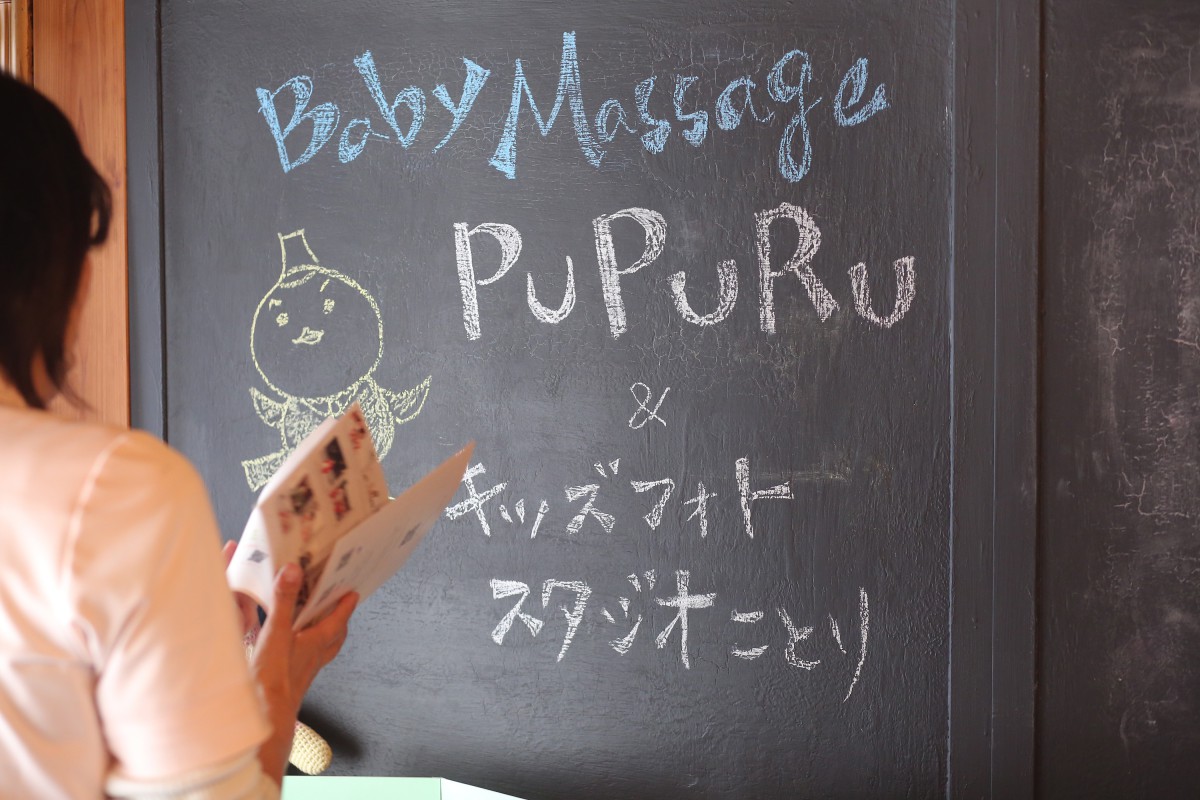 Baby Massage
PuPuRu
&
キッズフォト
スタジオことり